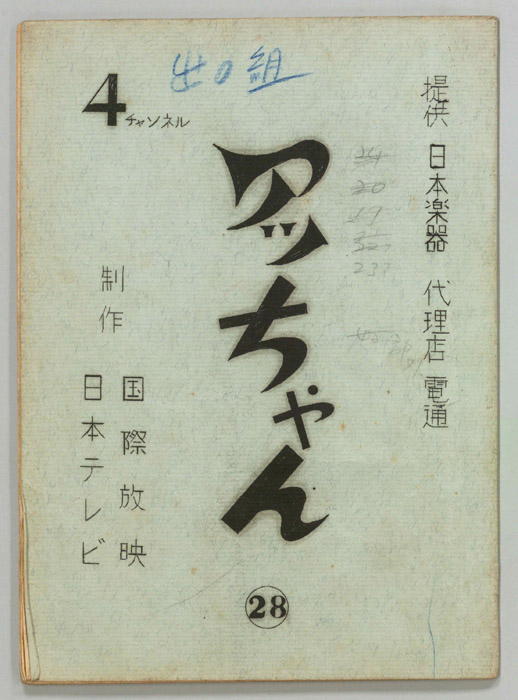 出口組
4チャンネル
提供 日本楽器 代理店 電通
アッちゃん
制作
国際放映
日本テレビ
28